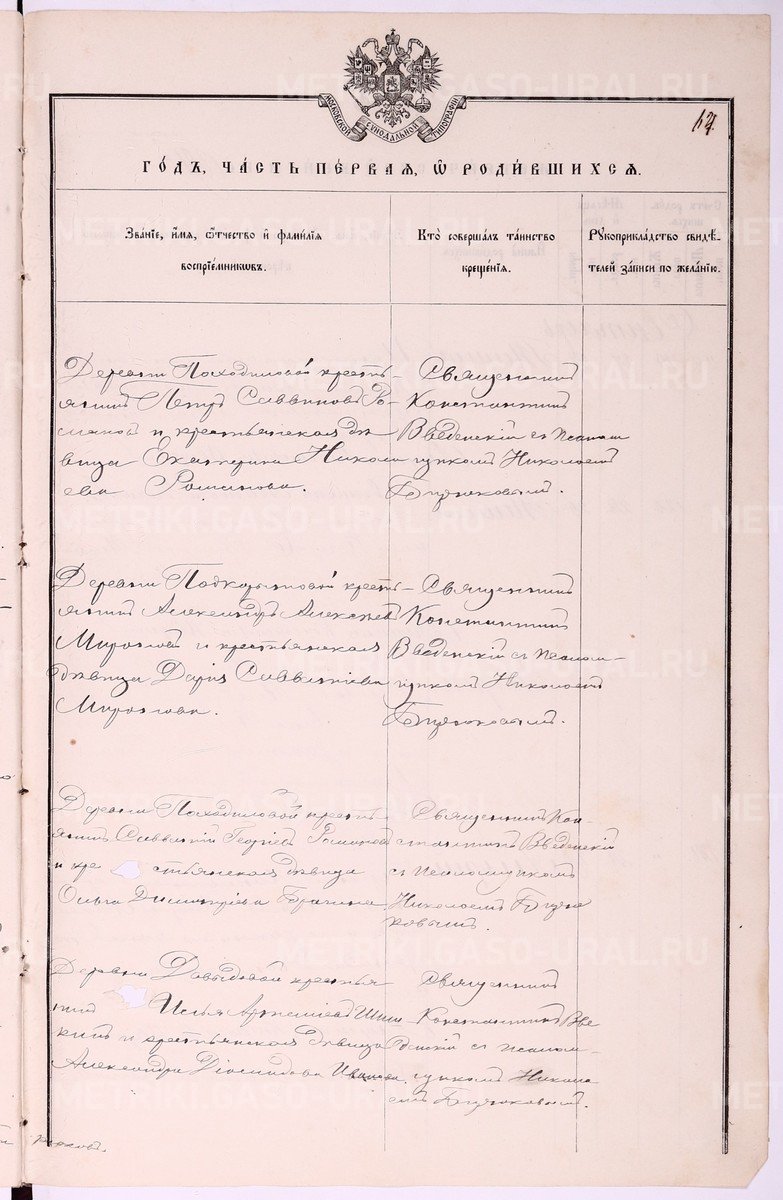 МОСКОВСКОЙ СУНОДАЛЬНОЙ ТИПОГРАФІИ
14.
ГО́ДЪ, ЧА́СТЬ ПЕ́РВАЯ, Ѡ҆ РОДИ́ВШИХСЯ.
Зва́нїе, и҆́мя, ѻ҆́тчество и҆ фами́лїя
воспрїе́мникѡвъ.
Кто̀ соверша́лъ та́инство
креще́нїя.
Рꙋкоприкла́дство свидѣ́-
телей за́писи по жела́нїю.
Деревни Походиловой кресть-
янинъ Петръ Саввиновъ Ро-
мановъ и крестьянская дѣ
вица Екатерина Никола
ева Романова.
Священникъ
Константинъ
Введенскій съ псалом
щикомъ Николаемъ
Бирюковымъ.
Деревни Подкорытовой кресть-
янинъ Александръ Алексѣевъ
Мироновъ и крестьянская
дѣвица Дарія Савватіева
Миронова.
Священникъ
Константинъ
Введенскій съ псалом-
щикомъ Николаемъ
Бирюковымъ.
Деревни Походиловой кресть
янинъ Савватій Георгіевъ Романовъ
и кре стьянская дѣвица
Ольга Димитріева
Священникъ Кон
стантинъ Введенскій
съ псаломщикомъ
Николаемъ Бирю
ковымъ.
Деревни Давыдовой крестья
нинъ Илья Артеміевъ Шиш
кинъ и крестьянская дѣвица
Александра Діомидова Иванова.
Священникъ
Константинъ Вве
денскій съ псалом-
щикомъ Никола
емъ Бирюковымъ.
METRIKI.GASO-URAL.RU